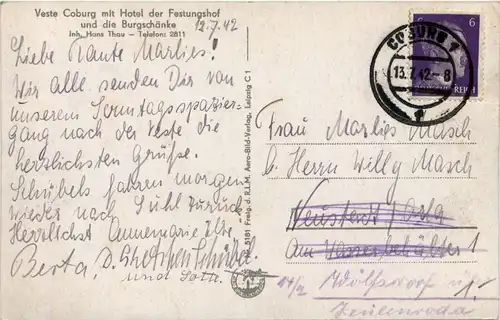 Veste Coburg mit Hotel der Festungshof
und die Burgschänke
Inh. Hans Thau — Telefon: 2811
12.7.42
Liebe Tante Marlies!
Wir alle senden Dir von
unserem Sonntagsspazier-
gang nach der Veste die
herzlichsten Grüße.
Schübels fahren morgen
wieder nach Suhl zurück.
Herzlichst Annemarie
Berta, D. Schübel
und Lotte.
5181 Freig. d. R.L.M. Aero-Bild-Verlag, Leipzig C 1
COBURG 1
13.7.42-8
1
6 6
REICH
Frau Marlies Masch
b. Herrn Willy Masch
Neustadt Orla
am Wasserbehälter 1
Wolfsdorf
Zeulenroda